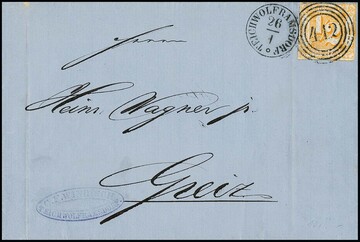 TEICHWOLFRAMSDORF
26
1
412
Herrn
Heinr. Wagner jr.
Greiz